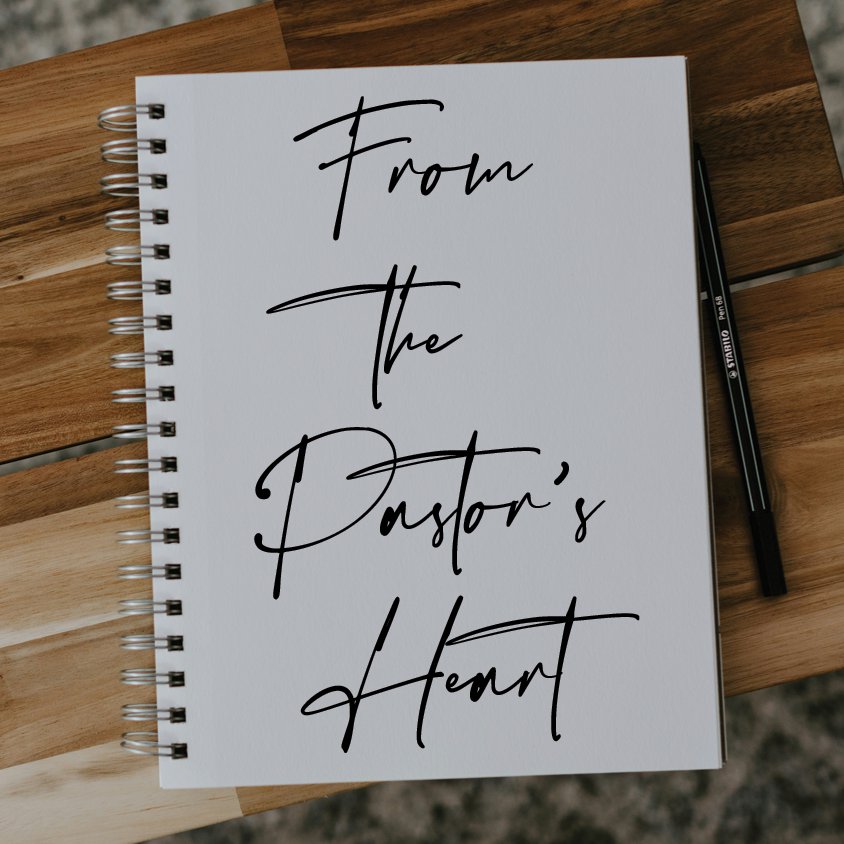 From
the
Pastor's
Heart
STABILO Pen 68